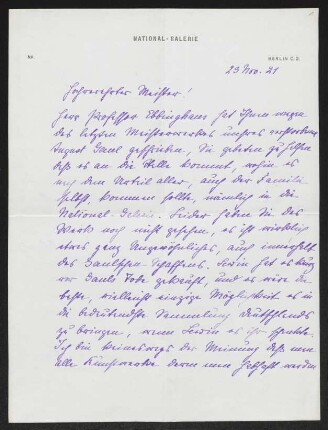 NATIONAL-GALERIE
NR.
BERLIN C. 2.
23 Nov. 21
Hochverehrter Meister!
Herr Professor Ebbinghaus hat Ihnen wegen
des letzten Meisterwerkes unsres verstorbenen
August Gaul geschrieben, Sie gebeten zu helfen
daß es an die Stelle kommt, wohin es
nach dem Urteil aller, auch der Familie
selbst, kommen sollte, nämlich in die
National-Galerie. Leider haben Sie das
Werk noch nicht gesehen, es ist wirklich
etwas ganz Ungewöhnliches, auch innerhalb
des Gaulschen Schaffens. hat es kurz
vor Gauls Tode gekauft, und es wäre die
beste, vielleicht einzige Möglichkeit es in
die bedeutendste Sammlung Deutschlands
zu bringen, wenn es ihr schenkte.
Ich bin keineswegs der Meinung daß man
alle Kunstwerke denen man habhaft werden